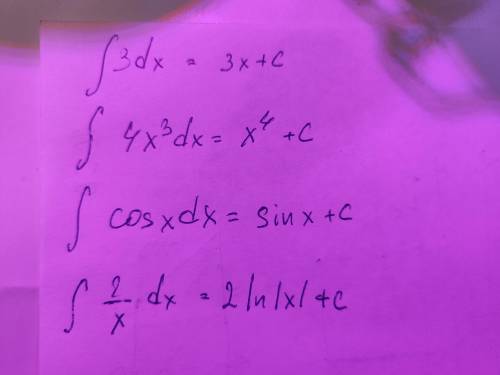 ∫ 3dx = 3x+c
∫ 4x³dx = x⁴ +c
∫ cosxdx = sinx+c
∫ 2/x dx = 2ln|x|+c